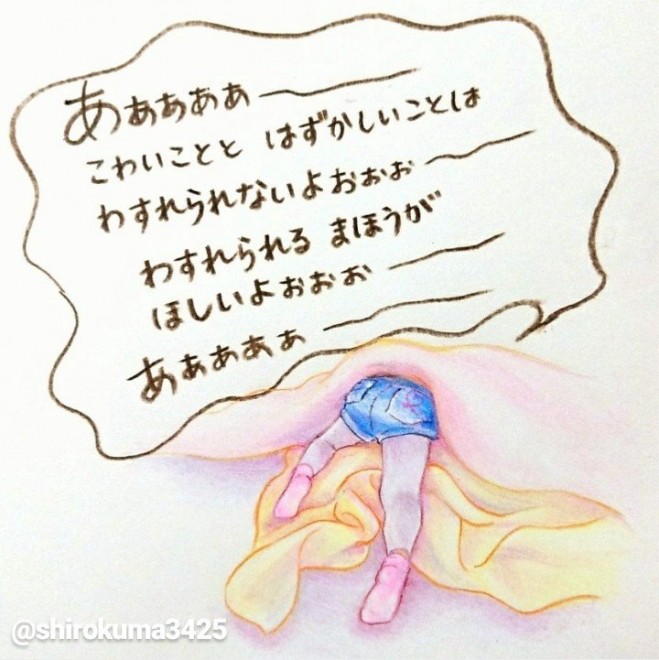 あぁぁぁぁ――
こわいことと はずかしいことは
わすれられないよぉぉぉ――
わすれられる まほうが
ほしいよぉぉぉ――
あぁぁぁぁ――
@shirokuma3425